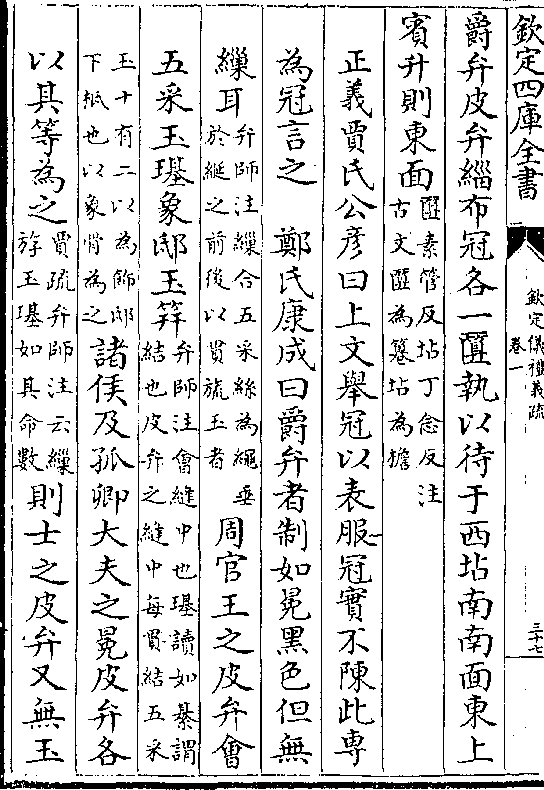 欽定四庫全書
欽定儀禮義疏
卷一
三十七
爵弁皮弁緇布冠各一匴執以待于西坫南南面東上
賓升則東面
匴素管反坫丁念反注
古文匴為篹坫為襜
正義賈氏公彦曰上文舉冠以表服冠實不陳此専
為冠言之 鄭氏康成曰爵弁者制如冕黑色但無
繅耳
弁師注繅合五采絲為繩垂
於綖之前後以貫旒玉者
周官王之皮弁㑹
五采玉璂象邸玉筓
弁師注㑹縫中也璂讀如綦謂
結也皮弁之縫中每貫結五采
玉十有二以為飾邸
下柢也以象骨為之
諸侯及孤卿大夫之冕皮弁各
以其等為之
賈疏弁師注云繅
斿玉璂如其命數
則士之皮弁又無玉